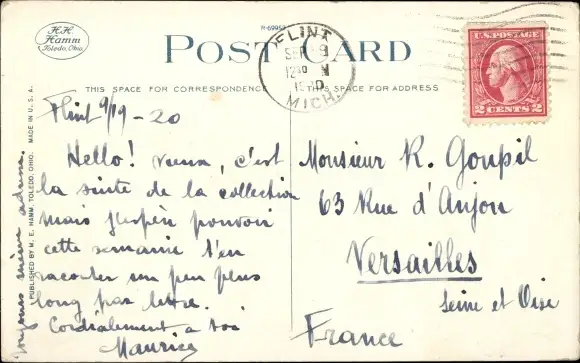 H.H. Hamm
Toledo, Ohio.
R-69952
POST CARD
FLINT
SEP 9
12 30 M
1920
MICH.
U.S. POSTAGE
2 CENTS 2
THIS SPACE FOR CORRESPONDENCE
THIS SPACE FOR ADDRESS
Flint 9/19-20
Hello! vieux, c'est
la suite de la collection
mais j'espère pouvoir
cette semaine t'en
raconter un peu plus
long par lettre.
Cordialement à toi
Maurice
toujours même adresse.
PUBLISHED BY H. H. HAMM, TOLEDO, OHIO. MADE IN U.S.A.
Monsieur R. Goupil
63 Rue d'Anjou
Versailles
Seine et Oise
France